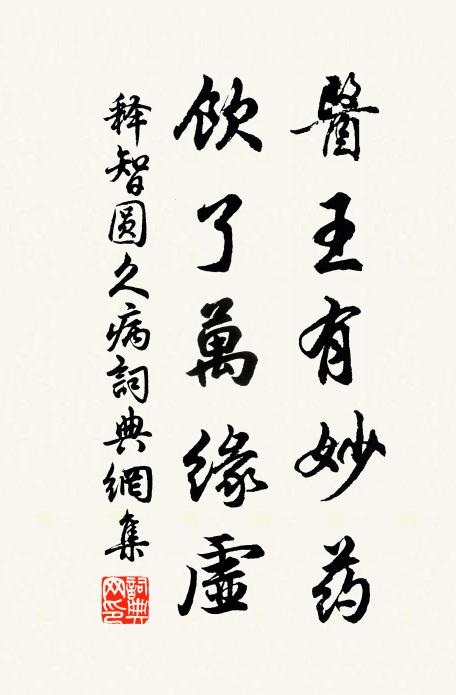 醫王有妙药
飲了萬緣虛
释智圆久病詞典網集
詞典网印